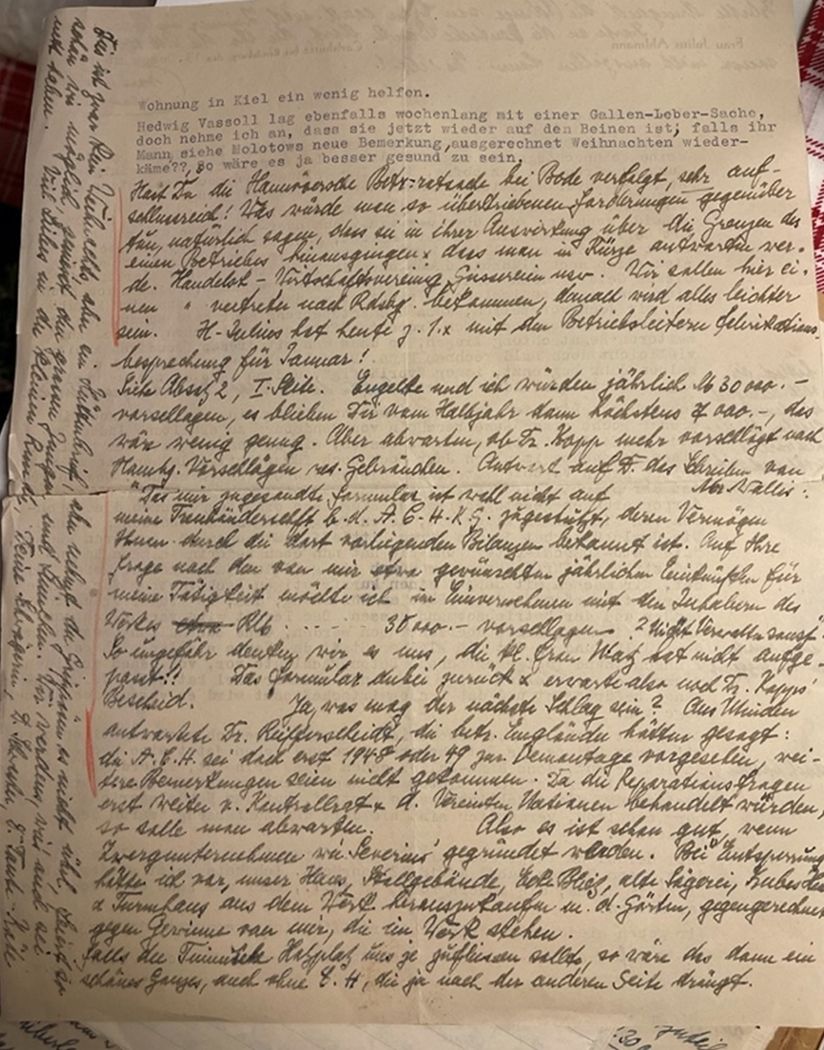 Frau Julius Ahlmann
Wohnung in Kiel ein wenig helfen.
Hedwig Vassoll lag ebenfalls wochenlang mit einer Gallen-Leber-Sache,
doch nehme ich an, dass sie jetzt wieder auf den Beinen ist; falls ihr
Mann, siehe Molotows neue Bemerkung, ausgerechnet Weihnachten wieder-
käme??, so wäre es ja besser gesund zu sein.
Hast Du die Hannöversche Betr.ratssache bei Bode verfolgt, sehr auf-
schlussreich! Was würde man so übertriebenen Forderungen gegenüber
tun, natürlich sagen, dass sie in ihrer Auswirkung über die Grenzen des
einen Betriebes hinausgingen & dass man in Kürze antworten wer-
de. Handelsk - Wirtschaftsvereinig. Giesserein usw. Wir sollen hier ei-
nen " vertreter nach Rdsbg. bekommen, danach wird alles leichter
sein. H-Julius hat heute z. 1. x mit den Betriebsleitern Fabrikations-
besprechung für Januar!
Siehe Absatz 2, I. Seite. Engelke und ich würden jährlich M 30 000.-
vorschlagen, es blieben Dir vom Halbjahr dann höchstens 7 000.-, das
wäre wenig genug. Aber abwarten, ob Dr. Kopp mehr vorschlägt nach
Hambg. Vorschlägen res. Gebräuchen. Antwort auf D. des Schreiben von
"Das mir zugesandte Formular ist wohl nicht auf Mr. Wallis:
meine Treuhänderschft b. d. A. C. H. K.G. zugestutzt, deren Vermögen
Ihnen durch die dort vorliegenden Bilanzen bekannt ist. Auf Ihre
Frage nach den von mir etwa gewünschten jährlichen Einkünften für
meine Tätigkeit möchte ich im Einvernehmen mit den Inhabern des
Werkes etwa RM ..... 30 000.- vorschlagen
So ungefähr denken wir es uns, die kl. Frau Matz hat nicht aufge-
passt!! Das Formular dabei zurück & erwarte also noch Dr. Kopps'
Bescheid. Ja, was mag der nächste Schlag sein? Aus Minden
antwortete Dr. Reifferscheidt, die betr. Engländer hätten gesagt:
die A. C. H. sei doch erst 1948 oder 49 zur Demontage vorgesehen, wei-
tere Bemerkungen seien nicht gekommen. Da die Reparationsfragen
erst weiter v. Kontrollrat & d. Vereinten Nationen behandelt würden,
so solle man abwarten. Also es ist schon gut, wenn
Zwergunternehmen wie Severins' gegründet werden. Bei Entsperrung
hätte ich vor, unser Haus, Stallgebäude, alte Sägerei,
& Turmhaus aus dem Werk herauszukaufen m. d. Gärten, gegengerechnet
gegen Gewinne von mir, die im Werk stehen.
Falls der Holzplatz uns je zufliessen sollte, so wäre das dann ein
schönes Ganzes, auch ohne C. H, die ja nach der anderen Seite drängt.
Dies ist zwar kein Weihnachts, aber ein Hüttenbrief,